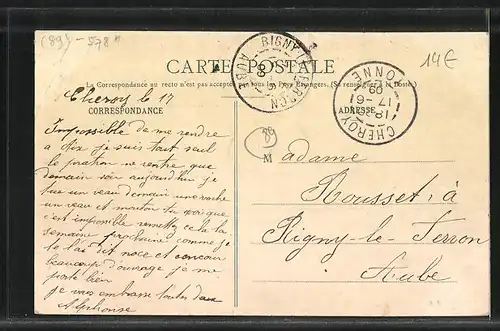 (89) - 578
14€
CARTE POSTALE
La Correspondance au recto n'est pas acceptée par tous les Pays Étrangers. (Se renseigner à la Poste)
RIGNY-LE-FERRON
AUBE
CHEROY
YONNE
18
17-6
09
Cheroy le 17
CORRESPONDANCE
ADRESSE
Impossible de me rendre
a Dix je suis tout seul
le patron ne rentre que
demain soir aujourd'hui je
tue un veau demain une vache
un veau et mouton tu vois que
c'est impossible remettez cela la
semaine prochaine comme je
te l'ai dit noce et concour
beaucoup d'ouvrage je me
porte bien
je vous embrasse toutes deux
Alphonse
Madame
Rousset à
Rigny-le-Ferron
Aube